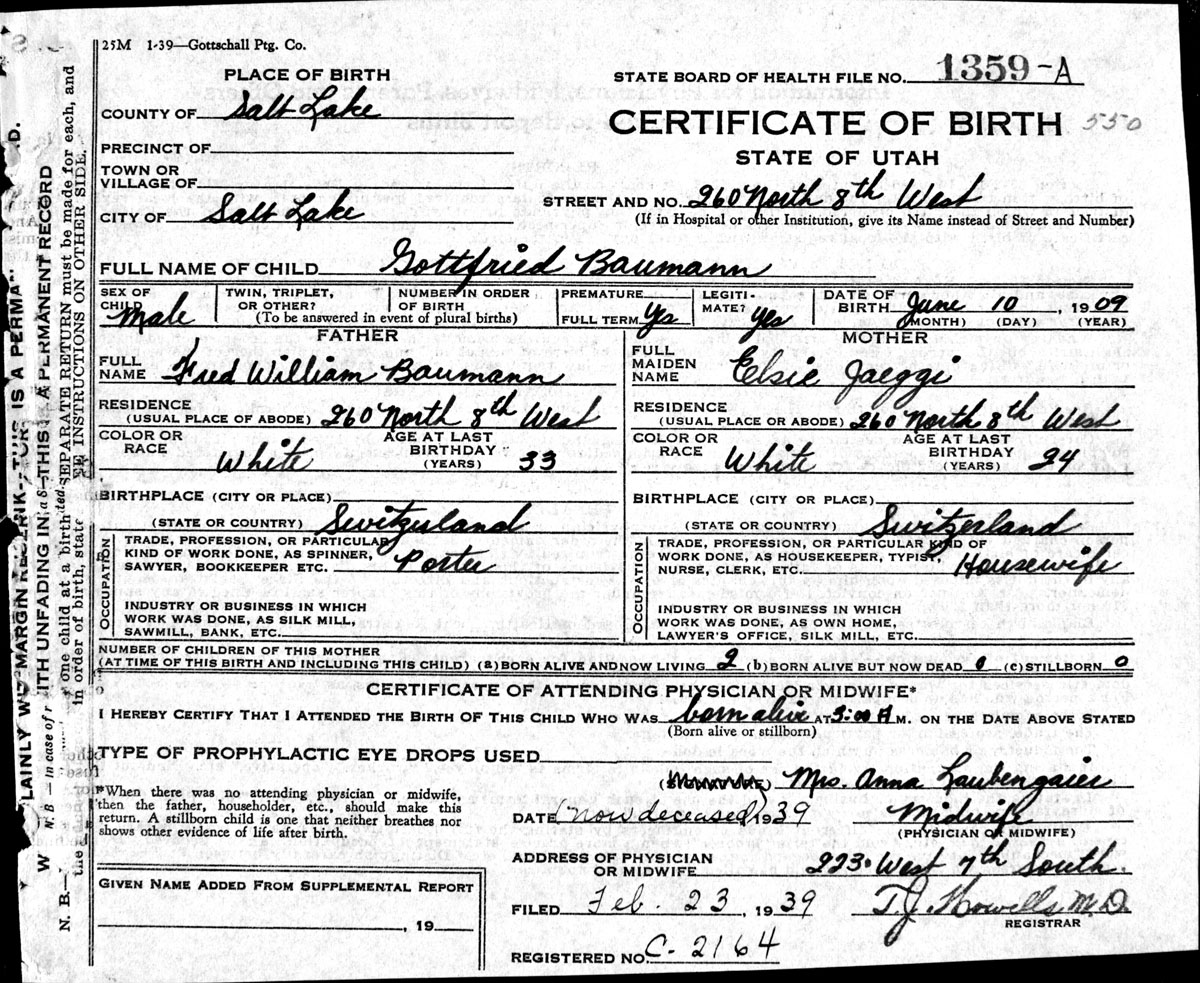 25M 1-39—Gottschall Ptg. Co.
PLACE OF BIRTH
STATE BOARD OF HEALTH FILE NO. 1359-A
COUNTY OF Salt Lake
CERTIFICATE OF BIRTH 550
PRECINCT OF
STATE OF UTAH
TOWN OR VILLAGE OF
STREET AND NO. 260 North 8th West
CITY OF Salt Lake
(If in Hospital or other Institution, give its Name instead of Street and Number)
FULL NAME OF CHILD Gottfried Baumann
SEX OF CHILD Male
TWIN, TRIPLET, OR OTHER?
NUMBER IN ORDER OF BIRTH
(To be answered in event of plural births)
PREMATURE
FULL TERM Yes
LEGITI- MATE? Yes
DATE OF BIRTH June 10, 1909
(MONTH) (DAY) (YEAR)
FATHER
FULL NAME Fred William Baumann
RESIDENCE (USUAL PLACE OF ABODE) 260 North 8th West
COLOR OR RACE White
AGE AT LAST BIRTHDAY (YEARS) 33
BIRTHPLACE (CITY OR PLACE)
(STATE OR COUNTRY) Switzerland
OCCUPATION
TRADE, PROFESSION, OR PARTICULAR
KIND OF WORK DONE, AS SPINNER,
SAWYER, BOOKKEEPER ETC. Porter
INDUSTRY OR BUSINESS IN WHICH
WORK WAS DONE, AS SILK MILL,
SAWMILL, BANK, ETC.
MOTHER
FULL MAIDEN NAME Elsie Jaeggi
RESIDENCE (USUAL PLACE OR ABODE) 260 North 8th West
COLOR OR RACE White
AGE AT LAST BIRTHDAY (YEARS) 24
BIRTHPLACE (CITY OR PLACE)
(STATE OR COUNTRY) Switzerland
OCCUPATION
TRADE, PROFESSION, OR PARTICULAR KIND OF
WORK DONE, AS HOUSEKEEPER, TYPIST,
NURSE, CLERK, ETC. Housewife
INDUSTRY OR BUSINESS IN WHICH
WORK WAS DONE, AS OWN HOME,
LAWYER'S OFFICE, SILK MILL, ETC.
NUMBER OF CHILDREN OF THIS MOTHER
(AT TIME OF THIS BIRTH AND INCLUDING THIS CHILD) (a) BORN ALIVE AND NOW LIVING 2 (b) BORN ALIVE BUT NOW DEAD (c) STILLBORN 0
CERTIFICATE OF ATTENDING PHYSICIAN OR MIDWIFE*
I HEREBY CERTIFY THAT I ATTENDED THE BIRTH OF THIS CHILD WHO WAS born alive AT 3:00 A M. ON THE DATE ABOVE STATED
(Born alive or stillborn)
TYPE OF PROPHYLACTIC EYE DROPS USED
Mrs. Anna Laubengaier
*When there was no attending physician or midwife,
then the father, householder, etc., should make this
return. A stillborn child is one that neither breathes nor
shows other evidence of life after birth.
DATE (Now deceased) 1939 Midwife
(PHYSICIAN OR MIDWIFE)
ADDRESS OF PHYSICIAN OR MIDWIFE 223 West 7th South.
GIVEN NAME ADDED FROM SUPPLEMENTAL REPORT
, 19
FILED Feb. 23, 1939 T. J. Howells M.D.
REGISTRAR
REGISTERED NO. C-2164